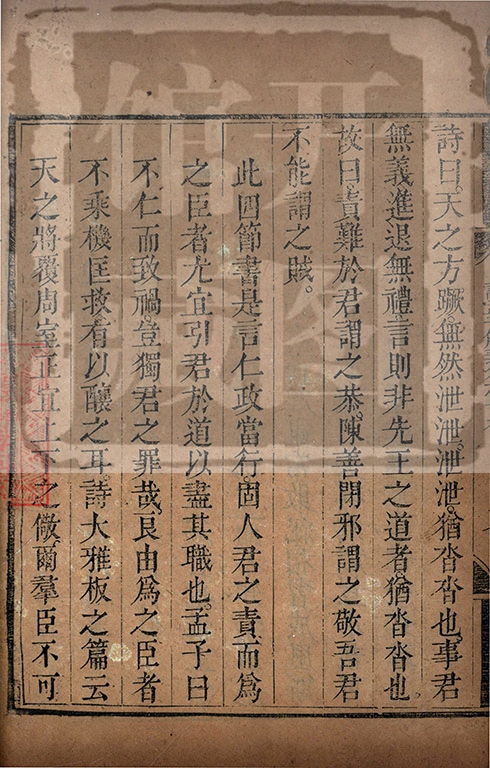 詩曰。天之方蹶。無然泄泄。泄泄。猶沓沓也。事君
無義進退無禮言則非先王之道者。猶沓沓也
故曰。責難於君謂之恭。陳善閉邪謂之敬吾君
不能謂之賊。
此四節書是言仁政當行。固人君之責。而爲
之臣者尤宜引君於道以盡其職也。孟子曰
不仁而致禍。豈獨君之罪哉。良由爲之臣者
不乘機匡救有以釀之耳。詩大雅板之篇云
天之將覆周室正宜上下之儆。爾羣臣不可